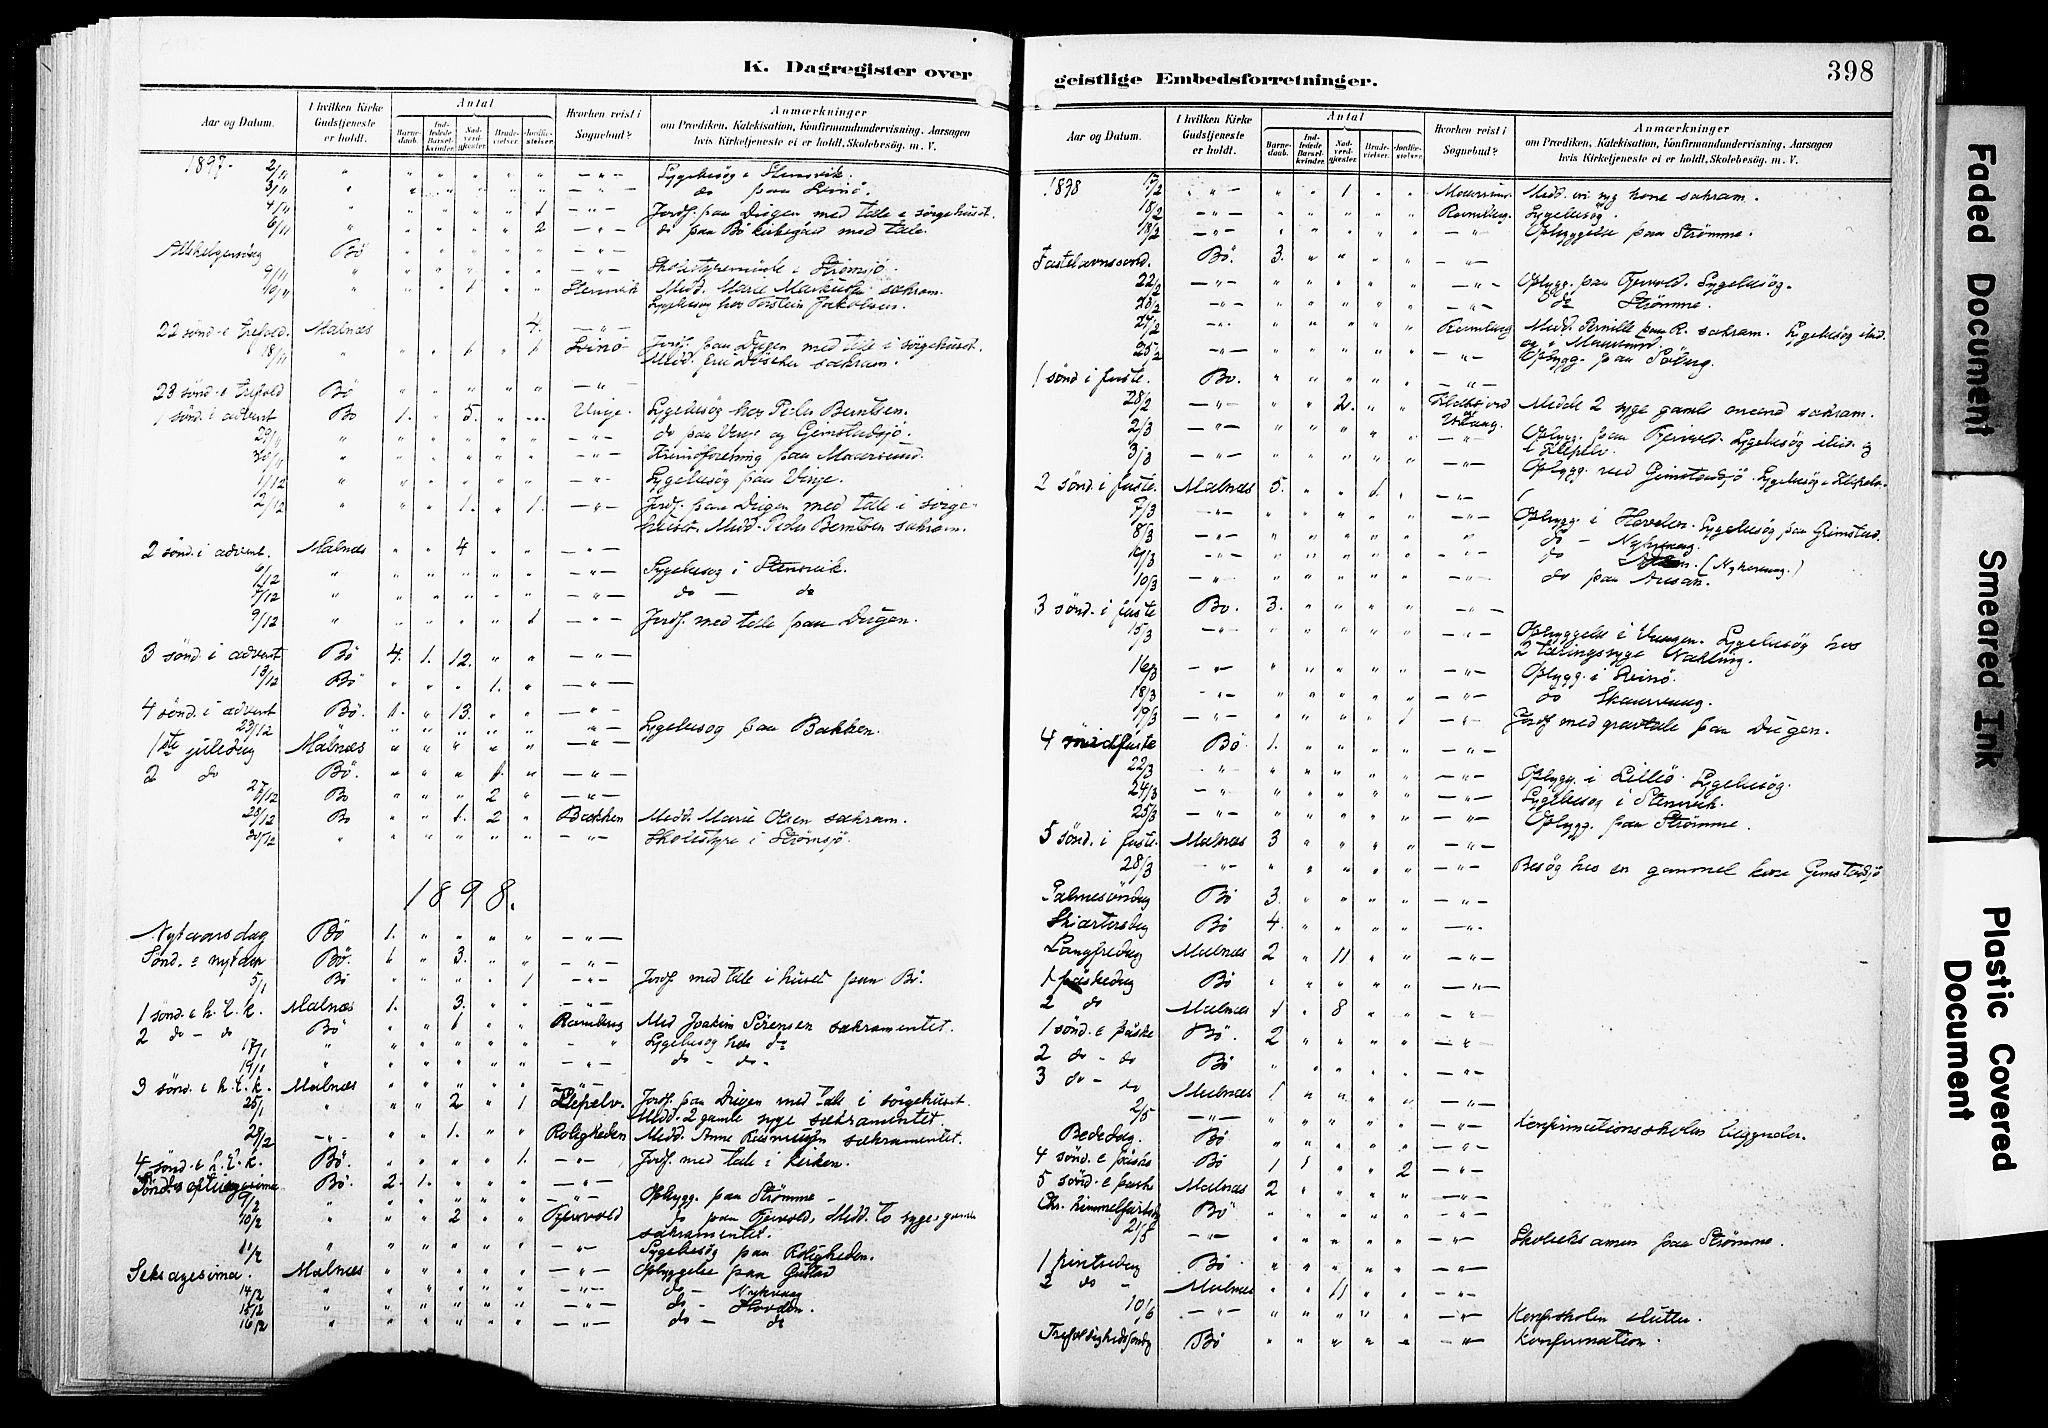 K. Dagregister over
Aar og Datum. I hvilken Kirke Gudstjeneste er holdt. Antal Barnedaab. Indledede Barselkvinder. Nadverdgjester. Brudevielser. Jordfæstelser. Hvorhen reist i Sognebud? Anmærkninger om Prædiken, Katekisation, Konfirmandundervisning, Aarsagen hvis Kirketjeneste ei er holdt, Skolebesøg. m. V.
1897. 2/11 " " " " " " —"— Sygebesøg i Stensvik.
3/11 " " " " " " —"— do paa
4/11 " " " " " 1 —"— Jordf. paa Dugen med tale i sørgehuset.
6/11 " " " " " 2 —"— do paa Bø kirkegaard med tale.
Allehelgensdag Bø —"—
9/11 " —"— Skolestyremøde i Strømsjø.
10/11 " 1 Stensvik Medd. Marie Markusen sakram.
Sygebesøg hos Torstein Jakobsen.
22 sønd. e trefold. Malnæs 4. —"—
18/11 " " " 1 " 1 Jordf. paa Dugen med tale i sørgehuset.
Medd. sakram.
23 sønd. e trefold Bø " " " " " —"—
1 sønd. i advent Bø 1. " 5. " Vinje. Sygebesøg hos Peder Berntsen.
29/11 " " " " " " —"— do paa Vinje og Gimstadsjø.
30/11 " " " " " " —"— Kvindforening paa Maarsund.
1/12 " " " " " " —"— Sygebesøg paa Vinje.
2/12 " " " 1. " 1. —"— Jordf. paa Dugen med tale i sørge-
huset. Medd. Peder Berntsen sakram.
2 sønd. i advent. Malnæs " " 4 " " —"—
6/12 " " " " " " —"— Sygebesøg i Stensvik.
7/12 " " " " " " —"— do — do
9/12 " " " " " 1 —"— Jordf. med tale paa Dugen.
3 sønd. i advent Bø 4. 1. 12. " " —"—
13/12 Bø " " " 1. " —"—
4 sønd. i advent Bø. 1. " 13. " " —"—
23/12 " " " " " —"— Sygebesøg paa Bakken.
1ste juledag Malnæs " " " " " —"—
2 do Bø. " " " 1. " —"—
27/12 Bø " " " 2 " —"—
28/12 Bø " " 1. 2 " Bakken Medd. Marie Olsen sakram.
30/12 " " " " " " —"— Skolestyre i Strømsjø.
1898.
Nytaarsdag Bø 1. " " " " —"—
Sønd. e nytaar Bø. 1 " 3. " " —"—
5/1 Bø " " " " 1 —"— Jordf. med tale i huset paa Bø.
1 sønd. e h. t. k. Malnæs 1. " 3. " " —"—
2 do — do Bø " " 1 " " Ramberg Med Joakim Sørensen sakramentet.
17/1 " " " " " " " Sygebesøg hos do
19/1 " " " " " " —"— do — do —
3 sønd. e h. t. k. Malnæs " " " " " —"—
25/1 " " " 2 " 1 Klepelv. Jordf. paa Dugen med tale i sørgehuset.
Medd. 2 gamle syge sakramentet.
—"— " " 1. " " Roligheden Medd. Anne Rasmussen sakramentet.
4 sønd. e h. t. k. Bø. " " " " 1. —"— Jordf. med tale i kirken.
Bø. 2. 1. " " " —"—
9/2 " " " " " " —"— Opbygg. paa Strømme —
10/2 " " " 2 " " Fjærvold do paa Fjærvold, Medd. to syge, gamle
sakramentet.
11/2 " " " " " " —"— Sygebesøg paa Roligheden.
Seksagesima. Malnæs " " " " " —"— Opbyggelse paa Gustad
14/2 " " " " " " —"— do — Nykvaag
15/2 " " " " " " —"— do — Hovden.
16/2 " " " " " " —"— do — do
geistlige Embedsforretninger.
398
Aar og Datum. I hvilken Kirke Gudstjeneste er holdt. Antal Barnedaab. Indledede Barselkvinder. Nadverdgjester. Brudevielser. Jordfæstelser. Hvorhen reist i Sognebud? Anmærkninger om Prædiken, Katekisation, Konfirmandundervisning, Aarsagen hvis Kirketjeneste ei er holdt, Skolebesøg. m. V.
1898 17/2 —"— " " 1 " " Medd. en syg kone sakram.
18/2 —"— " " " " " Ramberg. Sygebesøg.
18/2 —"— " " " " " —"— Opbyggelse paa Strømme.
Fastelavnssønd. Bø. 3. " " " " —"—
22/2 —"— " " " " " —"— Opbygg. paa Fjærvold. Sygebesøg.
23/2 —"— " " " " " —"— do Strømme.
24/2 —"— " " " " " Ramberg Medd. Pernille paa R. sakram. Sygebesøg
og i Maarsund.
25/2 —"— " " " " " —"— Opbygg. paa Søberg.
1 sønd i faste. Bø. " " " " " —"—
28/2 —"— " " 2. " " Medd. 2 syge gamle mænd sakram.
2/3 —"— " " " " " —"— Opbygg. paa Fjærvold. Sygebesøg og
i Klepelv.
3/3 —"— " " " " " —"— Opbygg. ved Gimstadsjø. Sygebesøg i Klepelv.
2 sønd. i faste. Malnæs 5. " " 1. " —"—
7/3 —"— " " " " " —"— Opbygg. i Hovden. Sygebesøg paa Grimstad.
8/3 —"— " " " " " " do — Nykvaag.
—"— " " " " " —"— do (Nykvaag.)
10/3 —"— " " " " " " do paa Aasan.
3 sønd. i faste Bø. 3. " " " " —"—
15/3 —"— " " " " " —"— Opbyggelse i Vaagen. Sygebesøg hos
2 tæringssyge
16/3 —"— " " " " " —"— Opbygg. i
18/3 —"— " " " " " —"— do Skaarvaag.
19/3 —"— " " " " 1 —"— Jordf med gravtale paa Dugen.
4 sønd i faste Bø. 1. " " " " —"—
22/3 —"— " " " " " —"— Opbygg. i Lillø. Sygebesøg.
24/3 —"— " " " " " —"— Sygebesøg i Stensvik.
25/3 —"— " " " " " —"— Opbygg. paa Strømme.
5 sønd. i faste. Malnæs 3 " " " " —"—
28/3 —"— " " " " " —"— Besøg hos en gammel kone Gimstadsjø
Palmesøndag Bø 3. " " " " —"—
Skjærtorsdag Bø 4. " " " " —"—
Langfredag Malnæs 2 " 11 " " —"—
1 paaskedag Bø " " " " " —"—
2 do Malnæs 1 " 8 " " —"—
1 sønd. e paaske Bø. 2 " " " " —"—
2 do — do Bø " " " " " —"—
3 do — do Malnæs 1 " " " " —"—
2/5 —"— " " " " " —"— Konfirmationsskolen begynder.
Bededag. Bø " " " " " —"—
4 sønd. e paaske Bø 1 1 " " 2 —"—
5 sønd. e paaske Malnæs 2 " " " " —"—
Chr. himmelfartsdag Bø " " " " " —"—
21/5 —"— " " " " " —"— Skoleeksamen paa Strømme.
1 pintsedag Bø " " " " " —"—
2 do — Malnæs " " 11 " " —"—
10/6 —"— " " " " " —"— Konf.skolen slutter.
Trefoldighedssøndag Bø " " " " " —"— Konfirmation.
Faded Document
Smeared Ink
Plastic Covered Document